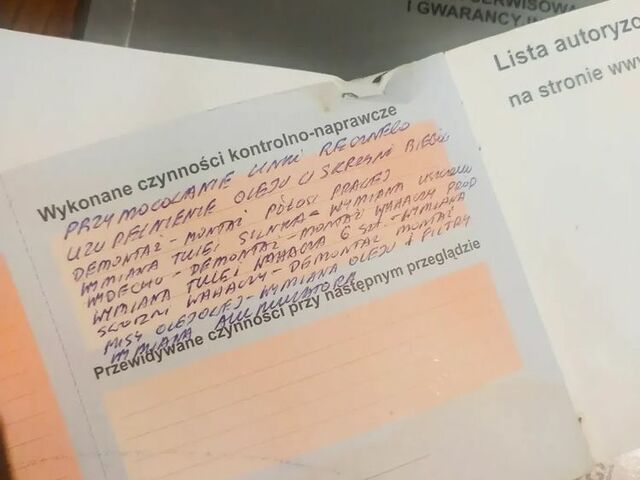 SERWISOWA
I GWARANCYJN
Lista autoryzo
na stronie www
Wykonane czynności kontrolno-naprawcze
PRZYMOCOWANIE LINKI RĘCZNEGO
UZUPEŁNIENIE OLEJU W SKRZYNI BIEGÓW
DEMONTAŻ - MONTAŻ PÓŁOSI PRAWEJ
WYMIANA TULEI SILNIKA - WYMIANA USZCZELKI
WYDECHU - DEMONTAŻ - MONTAŻ WAHACZY PRZÓD
WYMIANA TULEI WAHACZA 6 SZT - WYMIANA
SWORZNI WAHACZY - DEMONTAŻ MONTAŻ
MISY OLEJOWEJ - WYMIANA OLEJU i FILTRY
WYMIANA AKUMULATORA
Przewidywane czynności przy następnym przeglądzie